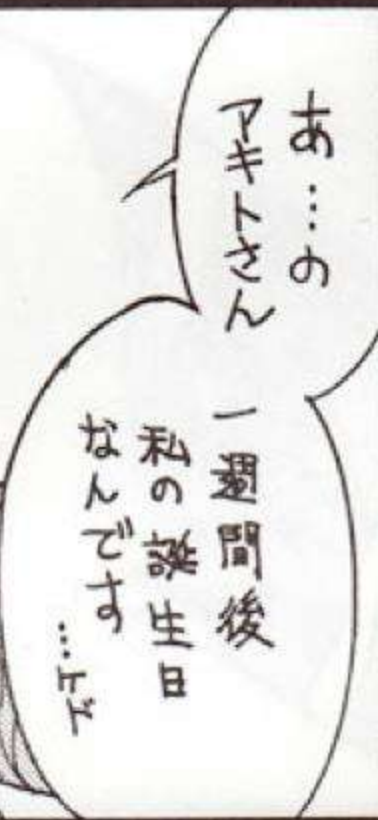 あ…の
アキトさん
一週間後
私の誕生日
なんです
…ケド